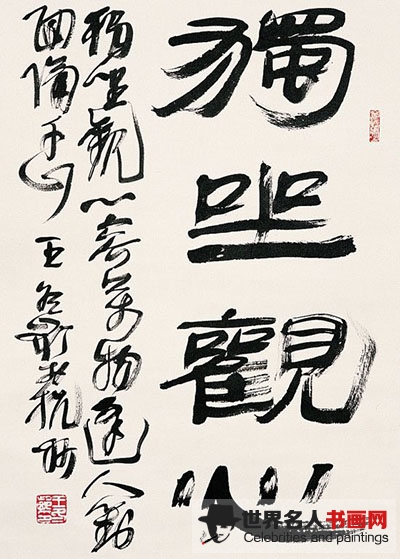 獨坐觀心
獨坐觀心萬物逢人對
面隔千山 王冬齡於杭州
世界名人书画网
Celebrities and paintings